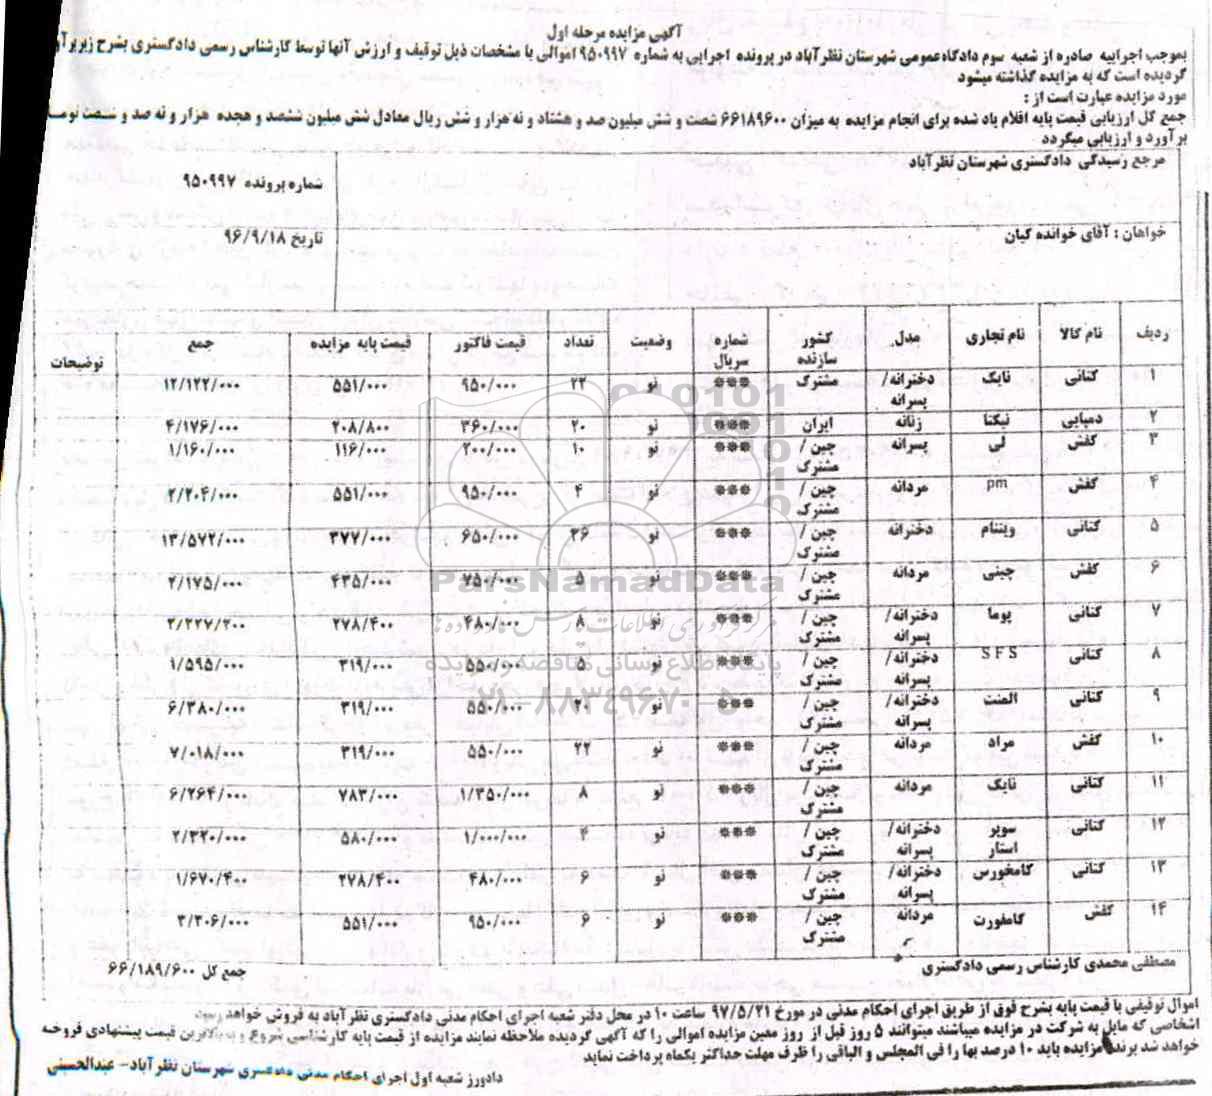 آگهی مزایده مرحله اول
بموجب اجراییه صادره از شعبه سوم دادگاه عمومی شهرستان نظرآباد در پرونده اجرایی به شماره ۹۵۰۹۹۷ اموالی با مشخصات ذیل توقیف و ارزش آنها توسط کارشناس رسمی دادگستری بشرح زیر برآو
گردیده است که به مزایده گذاشته میشود
مورد مزایده عبارت است از :
جمع کل ارزیابی قیمت پایه اقلام یاد شده برای انجام مزایده به میزان ۶۶۱۸۹۶۰۰ شصت و شش میلیون صد و هشتاد و نه هزار و شش ریال معادل شش میلیون ششصد و هجده هزار و نه صد و شصت تومـ
برآورد و ارزیابی میگردد
مرجع رسیدگی دادگستری شهرستان نظرآباد
شماره پرونده ۹۵۰۹۹۷
خواهان : آقای خوانده کیان
تاریخ ۹۶/۹/۱۸
ردیف نام کالا نام تجاری مدل کشور سازنده شماره سریال وضعیت تعداد قیمت فاکتور قیمت پایه مزایده جمع توضیحات
۱ کتانی نایک دخترانه/ پسرانه مشترک *** نو ۲۲ ۹۵۰/۰۰۰ ۵۵۱/۰۰۰ ۱۲/۱۲۲/۰۰۰
۲ دمپایی نیکتا زنانه ایران *** نو ۲۰ ۳۶۰/۰۰۰ ۲۰۸/۸۰۰ ۴/۱۷۶/۰۰۰
۳ کفش لی پسرانه چین / مشترک *** نو ۱۰ ۲۰۰/۰۰۰ ۱۱۶/۰۰۰ ۱/۱۶۰/۰۰۰
۴ کفش pm مردانه چین / مشترک *** نو ۴ ۹۵۰/۰۰۰ ۵۵۱/۰۰۰ ۲/۲۰۴/۰۰۰
۵ کتانی ویتنام دخترانه چین / مشترک *** نو ۳۶ ۶۵۰/۰۰۰ ۳۷۷/۰۰۰ ۱۳/۵۷۲/۰۰۰
۶ کفش چینی مردانه چین / مشترک *** نو ۵ ۷۵۰/۰۰۰ ۴۳۵/۰۰۰ ۲/۱۷۵/۰۰۰
۷ کتانی پوما دخترانه/ پسرانه چین / مشترک *** نو ۸ ۴۸۰/۰۰۰ ۲۷۸/۴۰۰ ۲/۲۲۷/۲۰۰
۸ کتانی SFS دخترانه/ پسرانه چین / مشترک *** نو ۵ ۵۵۰/۰۰۰ ۳۱۹/۰۰۰ ۱/۵۹۵/۰۰۰
۹ کتانی الضت دخترانه/ پسرانه چین / مشترک *** نو ۲۰ ۵۵۰/۰۰۰ ۳۱۹/۰۰۰ ۶/۳۸۰/۰۰۰
۱۰ کفش مراد مردانه چین / مشترک *** نو ۲۲ ۵۵۰/۰۰۰ ۳۱۹/۰۰۰ ۷/۰۱۸/۰۰۰
۱۱ کتانی نایک مردانه چین / مشترک *** نو ۸ ۱/۳۵۰/۰۰۰ ۷۸۳/۰۰۰ ۶/۲۶۴/۰۰۰
۱۲ کتانی سوپر استار دخترانه/ پسرانه چین / مشترک *** نو ۴ ۱/۰۰۰/۰۰۰ ۵۸۰/۰۰۰ ۲/۳۲۰/۰۰۰
۱۳ کتانی کامخورس دخترانه/ پسرانه چین / مشترک *** نو ۶ ۴۸۰/۰۰۰ ۲۷۸/۴۰۰ ۱/۶۷۰/۴۰۰
۱۴ کفش کامفورت مردانه چین / مشترک *** نو ۶ ۹۵۰/۰۰۰ ۵۵۱/۰۰۰ ۳/۳۰۶/۰۰۰
مصطفی محمدی کارشناس رسمی دادگستری
جمع کل ۶۶/۱۸۹/۶۰۰
اموال توقیفی با قیمت پایه بشرح فوق از طریق اجرای احکام مدنی در مورخ ۹۷/۵/۲۱ ساعت ۱۰ در محل دفتر شعبه اجرای احکام مدنی دادگستری نظرآباد به فروش خواهد رسید.
اشخاصی که مایل به شرکت در مزایده میباشند میتوانند ۵ روز قبل از روز معین مزایده اموالی را که آگهی گردیده ملاحظه نمایند مزایده از قیمت پایه کارشناسی شروع و به بالاترین قیمت پیشنهادی فروخته
خواهد شد برنده مزایده باید ۱۰ درصد بها را فی المجلس و الباقی را ظرف مهلت حداکثر یکماه پرداخت نماید
دادورز شعبه اول اجرای احکام مدنی دادگستری شهرستان نظرآباد- عبدالحسینی
ParsNamadData
مرکز فرآوری اطلاعات پارس نماد داده ها
پایگاه اطلاع رسانی مناقصه و مزایده
۰۲۱-۸۸۳۴۹۶۷۰-۵